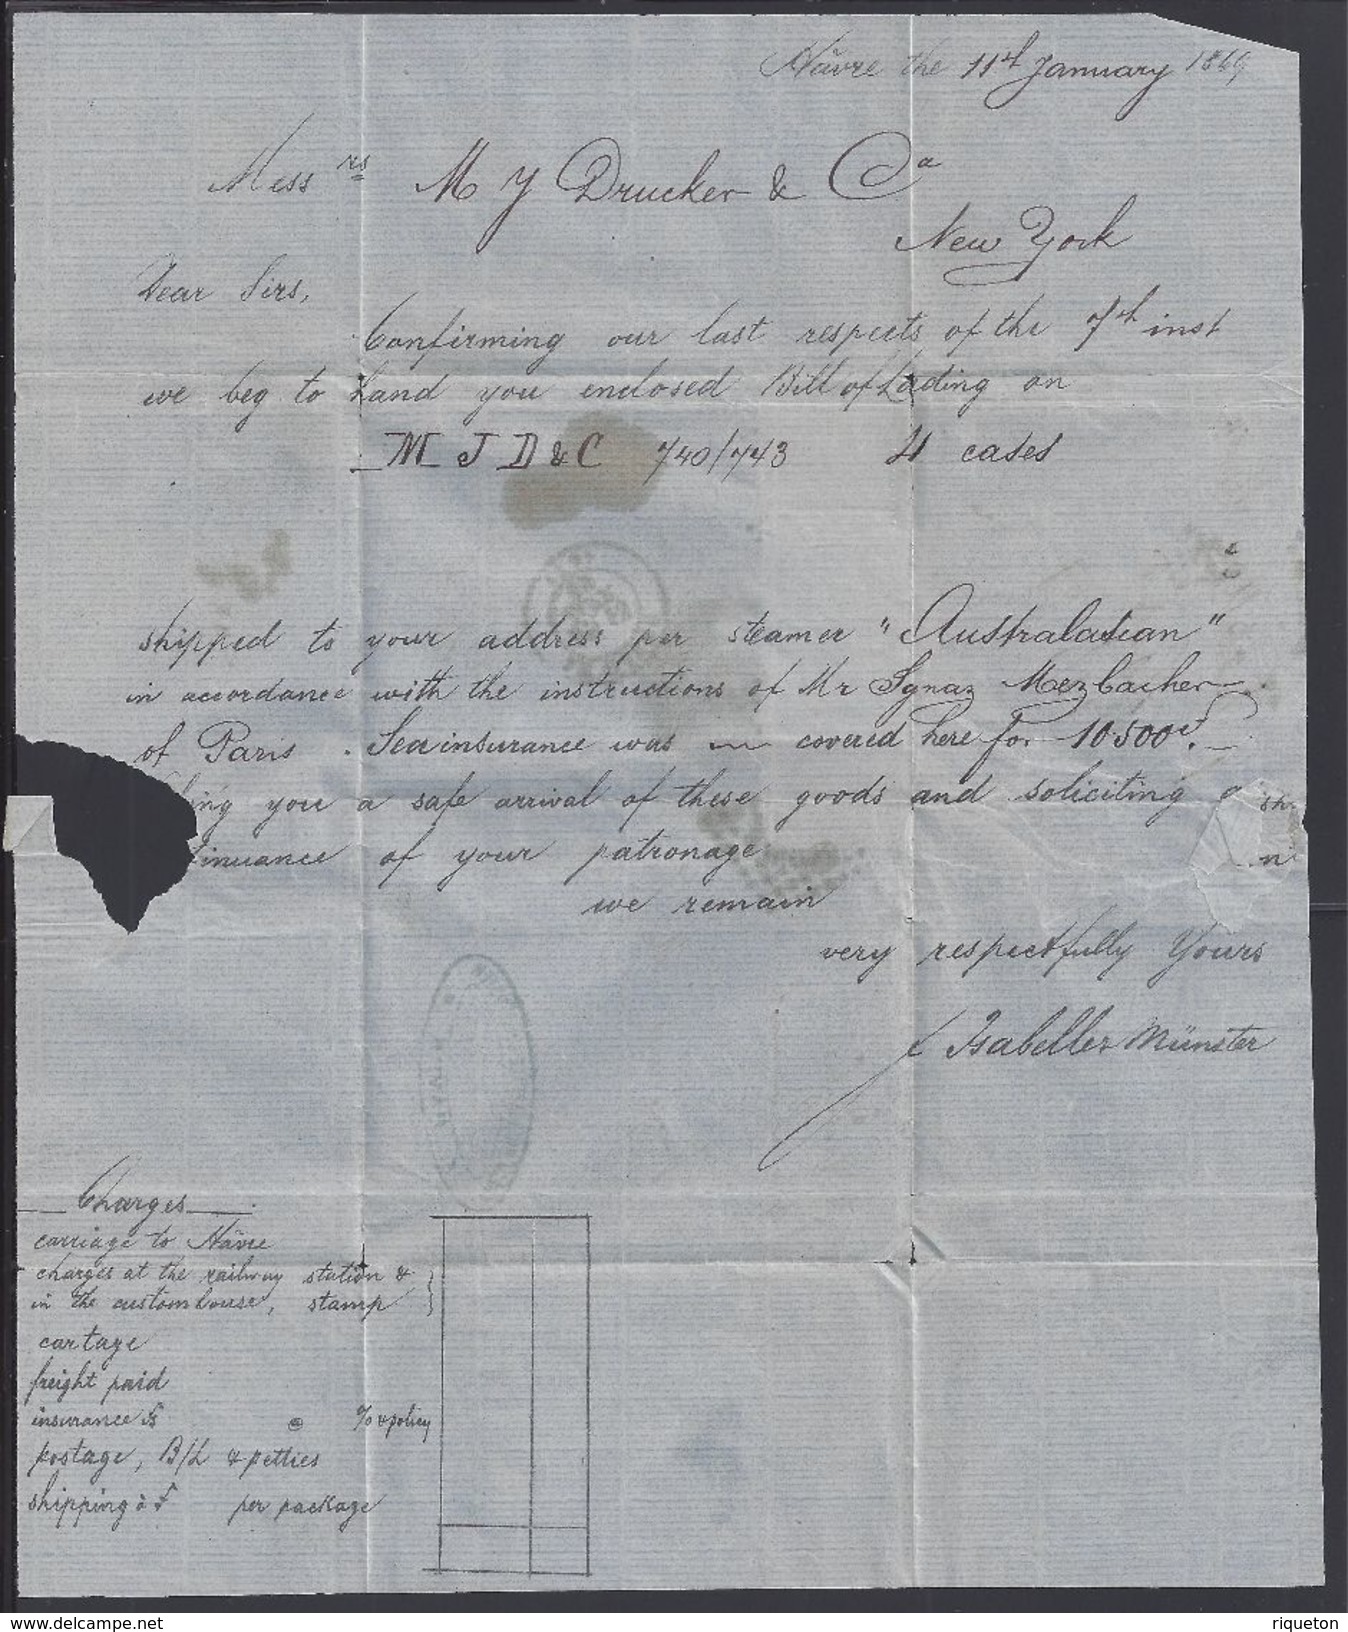 Hâvre the 11th January 1869
Messrs M J Drucker & Ca
New York
Dear Sirs,
Confirming our last respects of the 7th inst
we beg to hand you enclosed Bill of Lading on
M J D & C 740/743 4 cases
shipped to your address per steamer "Australasian"
in accordance with the instructions of Mr Ignaz Merzbacher
of Paris. Seainsurance was covered here for 10500
you a safe arrival of these goods and soliciting
tinuance of your patronage
we remain
very respectfully Yours
Isabeller Münster
Charges
carriage to Hâvre
charges at the railway station &
in the customhouse, stamp
cartage
freight paid
insurance fs @ % & policy
postage, B/L & petties
shipping à f per package
riqueton
www.delcampe.net